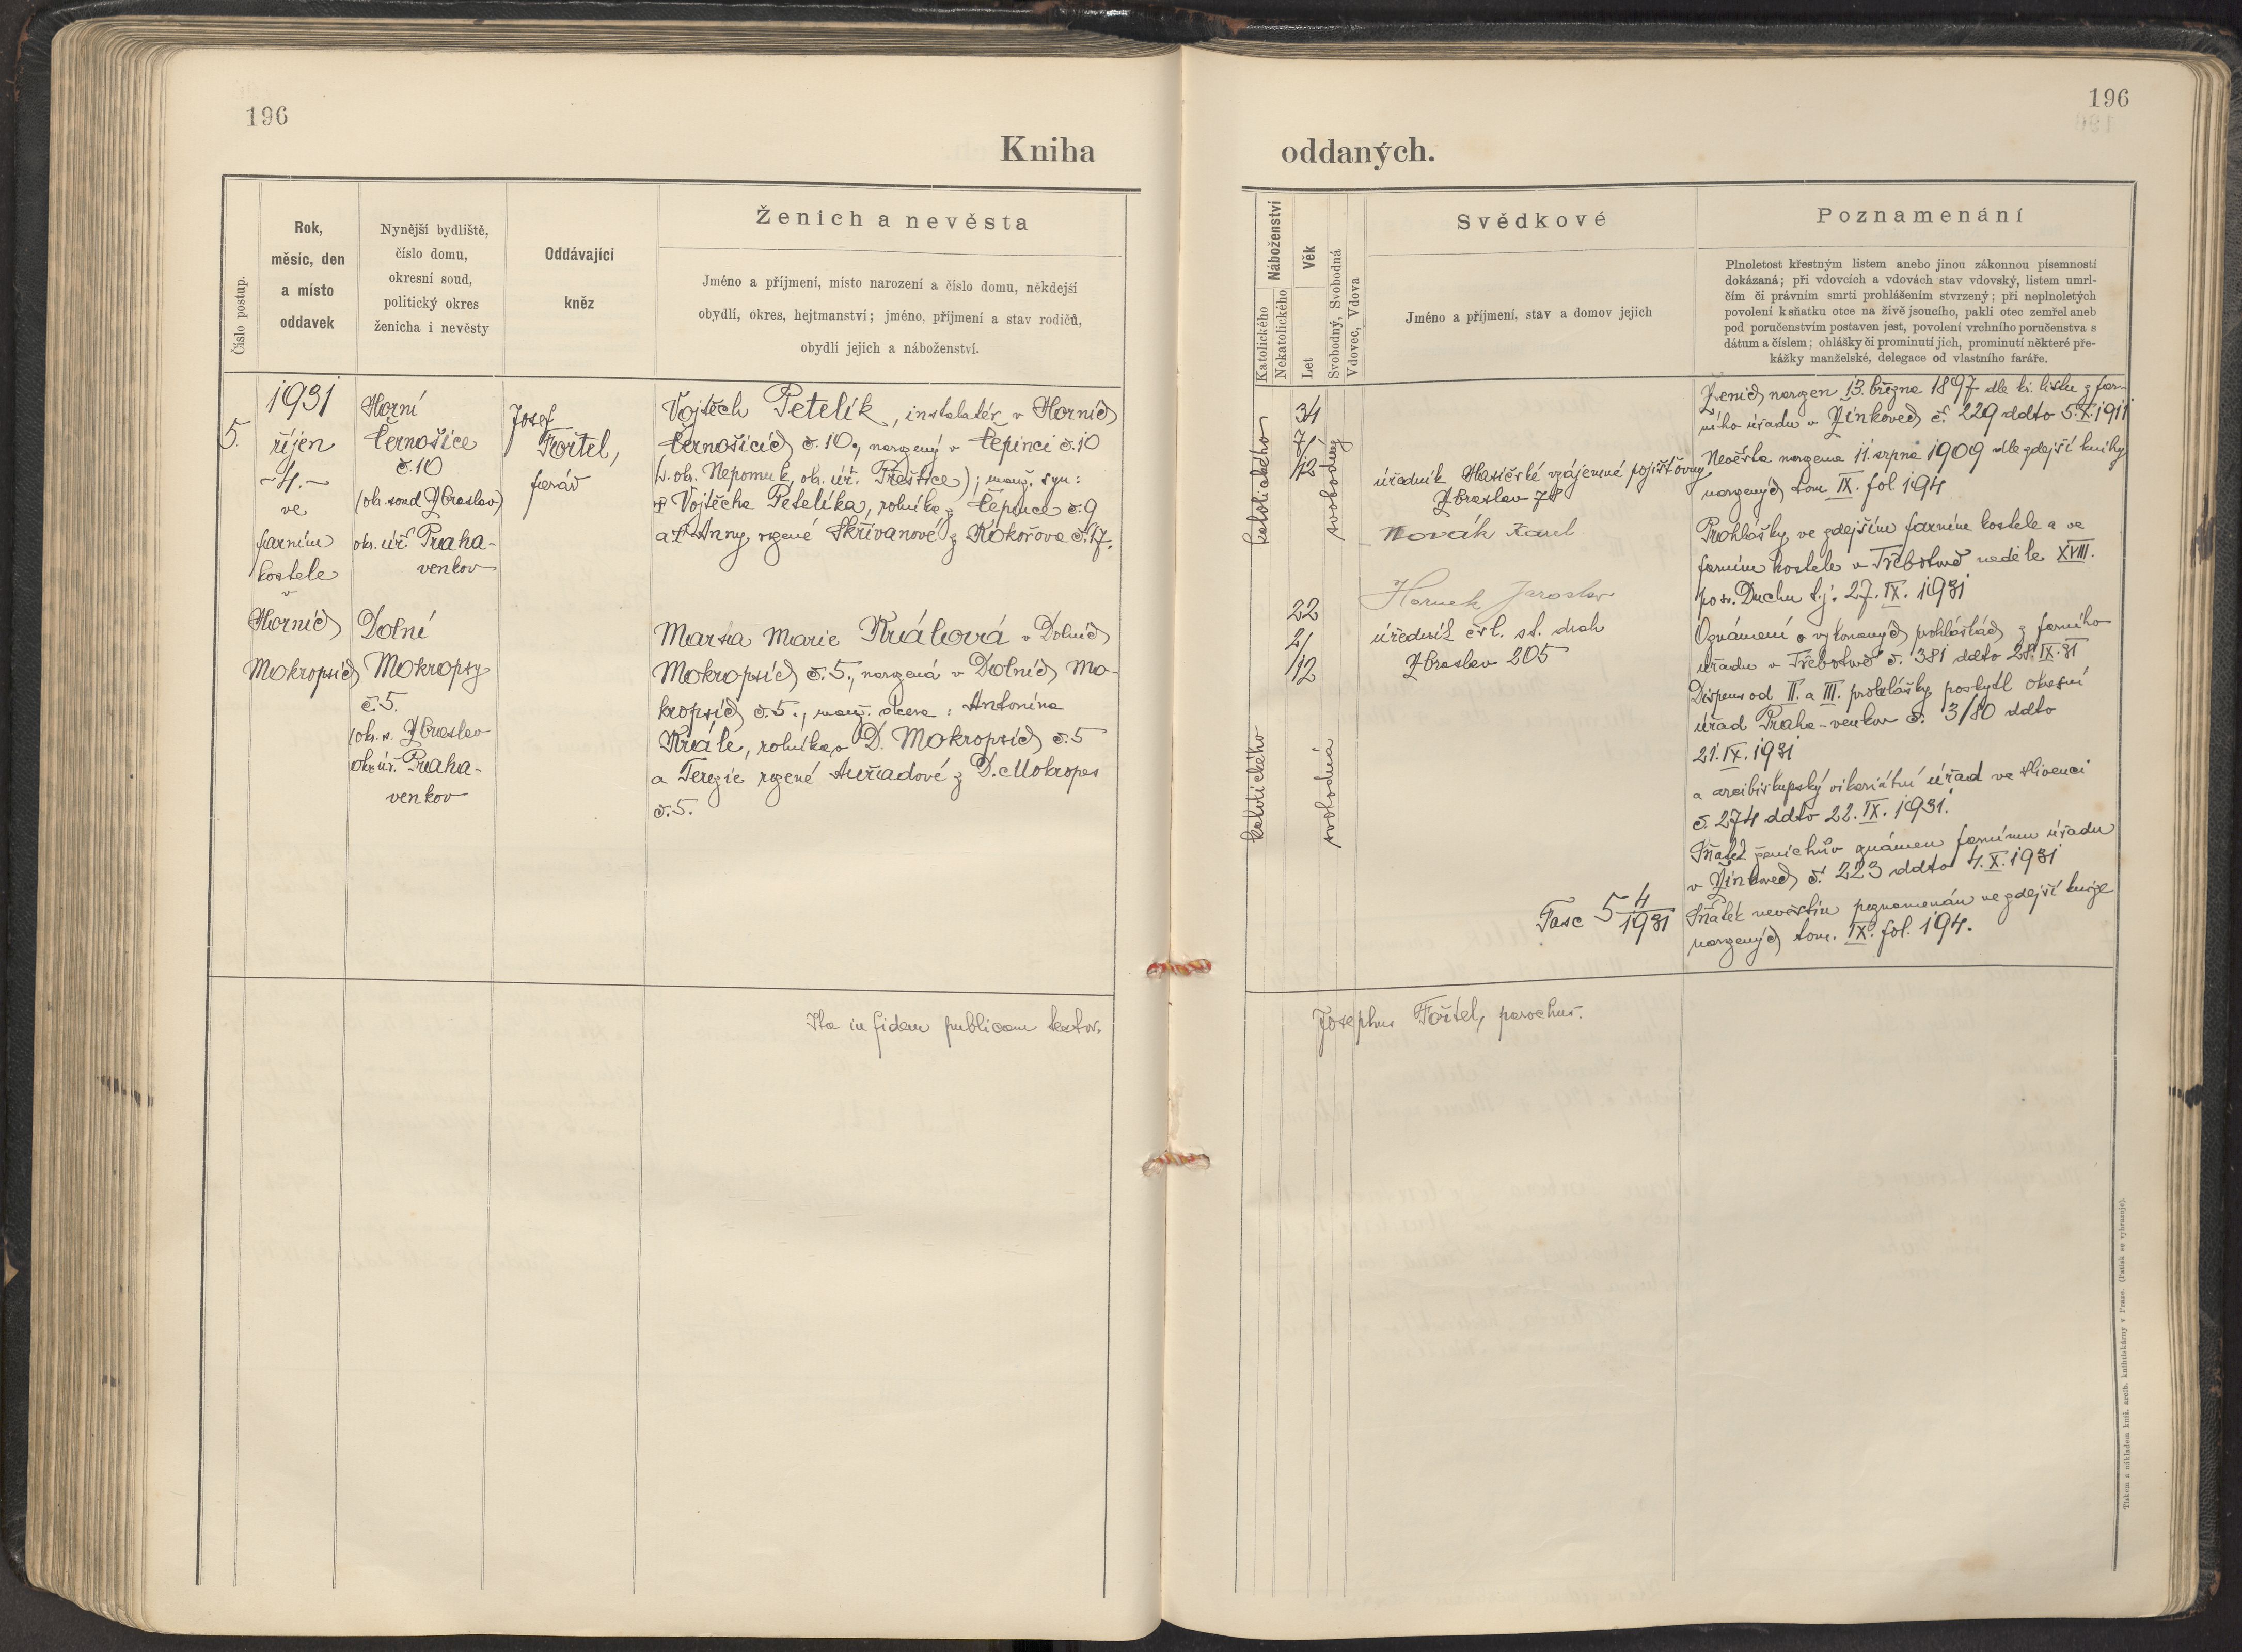 196
196
Kniha
oddaných.
Číslo postup.
Rok,
měsíc, den
a místo
oddavek
Nynější bydliště,
číslo domu,
okresní soud,
politický okres
ženicha i nevěsty
Oddávající
kněz
Ženich a nevěsta
Jméno a příjmení, místo narození a číslo domu, někdejší
obydlí, okres, hejtmanství; jméno, příjmení a stav rodičů,
obydlí jejich a náboženství.
5.
1931
říjen
-4.-
ve
farním
kostele
v
Horních
Mokropsích
Horní
Černošice
č.10
(ok. soud Zbraslav)
ok. úř. Praha-
venkov
Dolní
Mokropsy
č.5.
(ok. s. Zbraslav
ok. úř. Praha-
venkov
Josef
Fořtel,
farář
Vojtěch Petelík, instalatér v Horních
Černošicích č.10., narozený v Čepinci č.10
(s. ok. Nepomuk, ok. úř. Přeštice); manž. syn:
† Vojtěcha Petelíka, rolníka z Čepince č.9
a † Anny, rozené Skřivanové z Kokořova č.17.
Marta Marie Králová v Dolních
Mokropsích č.5., narozená v Dolních Mo-
kropsích č.5., manž. dcera: Antonína
Krále, rolníka v D. Mokropsích č.5
a Terezie rozené Auřadové z D. Mokropes
č.5.
Ita in fidem publicam testor.
Náboženství
Katolického
Nekatolického
Věk
Let
Svobodný, Svobodná
Vdovec, Vdova
Svědkové
Jméno a příjmení, stav a domov jejich
Poznamenání
Plnoletost křestným listem anebo jinou zákonnou písemností
dokázaná; při vdovcích a vdovách stav vdovský, listem umrl-
čím či právním smrti prohlášením stvrzený; při neplnoletých
povolení k sňatku otce na živě jsoucího, pakli otec zemřel aneb
pod poručenstvím postaven jest, povolení vrchního poručenstva s
dátum a číslem; ohlášky či prominutí jich, prominutí některé pře-
kážky manželské, delegace od vlastního faráře.
katolického
34
7/
12
svobodný
úředník Hasičské vzájemné pojišťovny
Zbraslav 78
Novák Karel
Jaroslav
úředník čsl. st. drah
Zbraslav 205
katolického
22
2/
12
svobodná
Ženich narozen 13. března 1897 dle kř. listu z far-
ního úřadu v Žinkovech č. 229 ddto 5.X.1911
Nevěsta narozena 11. srpna 1909 dle zdejší knihy
narozených tom. IX. fol 194
Prohlášky ve zdejším farním kostele a ve
farním kostele v Třebotově neděle XVIII.
po sv. Duchu t.j. 27. IX. 1931
Oznámení o vykonaných prohláškách z farního
úřadu v Třebotově č. 381 ddto 28.IX.31
Dispens od II. a III. prohlášky poskytl okresní
úřad Praha-venkov č. 3/80 ddto
21. IX. 1931
a arcibiskupský vikariátní úřad ve Slivenci
č. 274 ddto 22. IX. 1931.
Sňatek ženichův oznámen farnímu úřadu
v Žinkovech č. 223 ddto 4. X. 1931
Fasc 5 4/1931
Sňatek nevěstin poznamenán ve zdejší knize
narozených tom. IX. fol. 194.
Josephus Fořtel, parochus.
Tiskem a nákladem kníž. arcib. knihtiskárny v Praze. (Patisk se vyhrazuje).